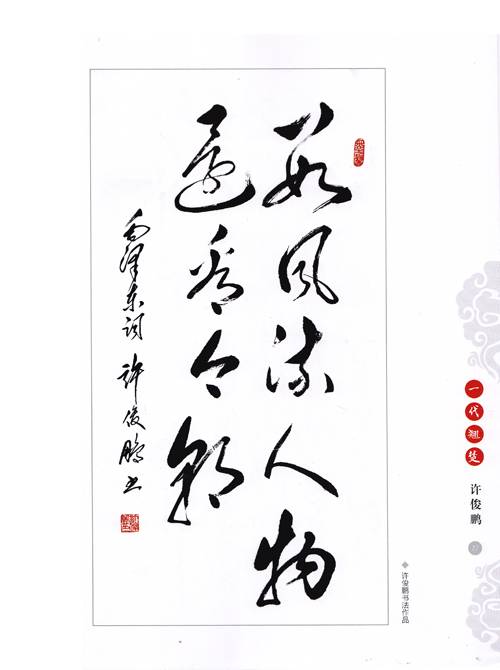 数风流人物
还看今朝
毛泽东词 许俊鹏书
一代翘楚
许俊鹏
许俊鹏书法作品